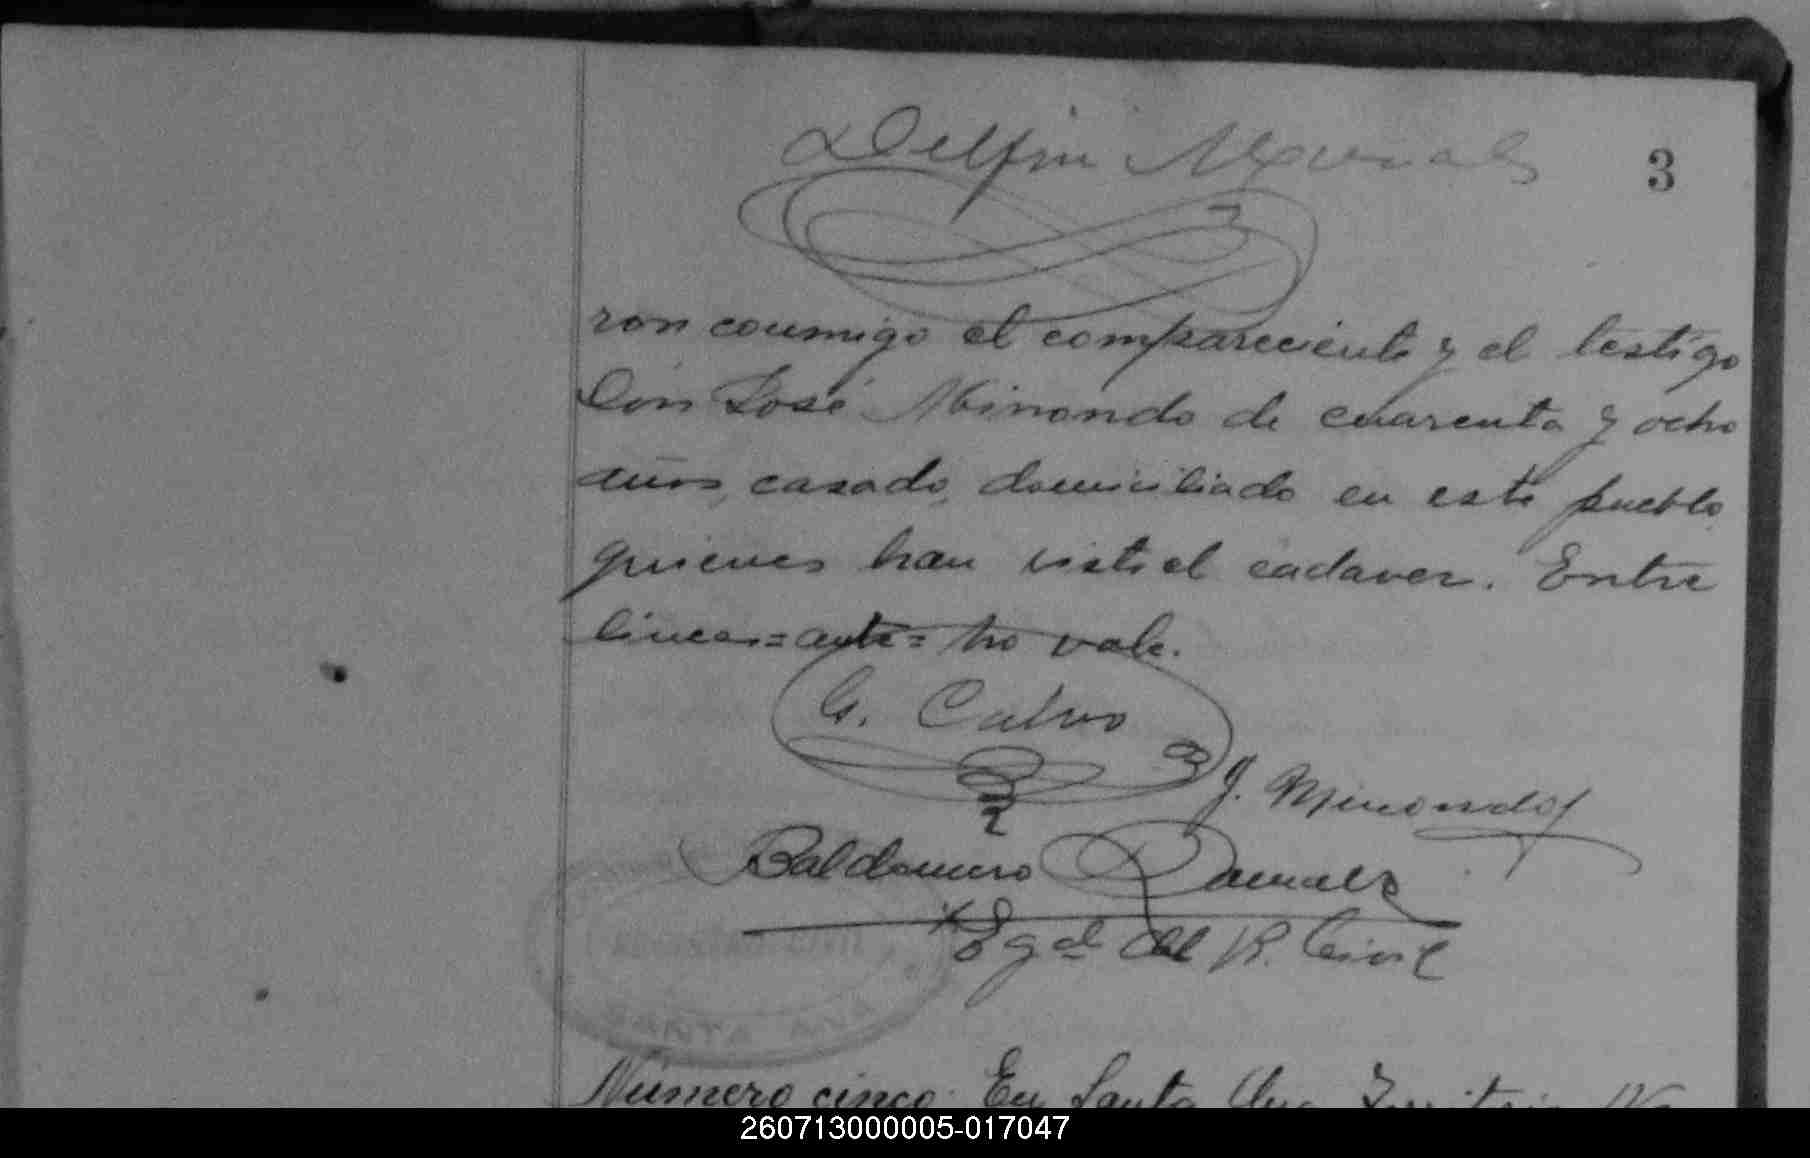 Delfin
3
ron conmigo el compareciente y el testigo
Don José Minondo de cuarenta y ocho
años, casado, domiciliado en este pueblo
quienes han visto el cadaver. Entre
lineas=ante=no vale.
G. Calvo
J. Minondo
Baldomero
del R. Civil
REGISTRO CIVIL
SANTA ANA
Número cinco. En Santa Ana Territorio
260713000005-017047